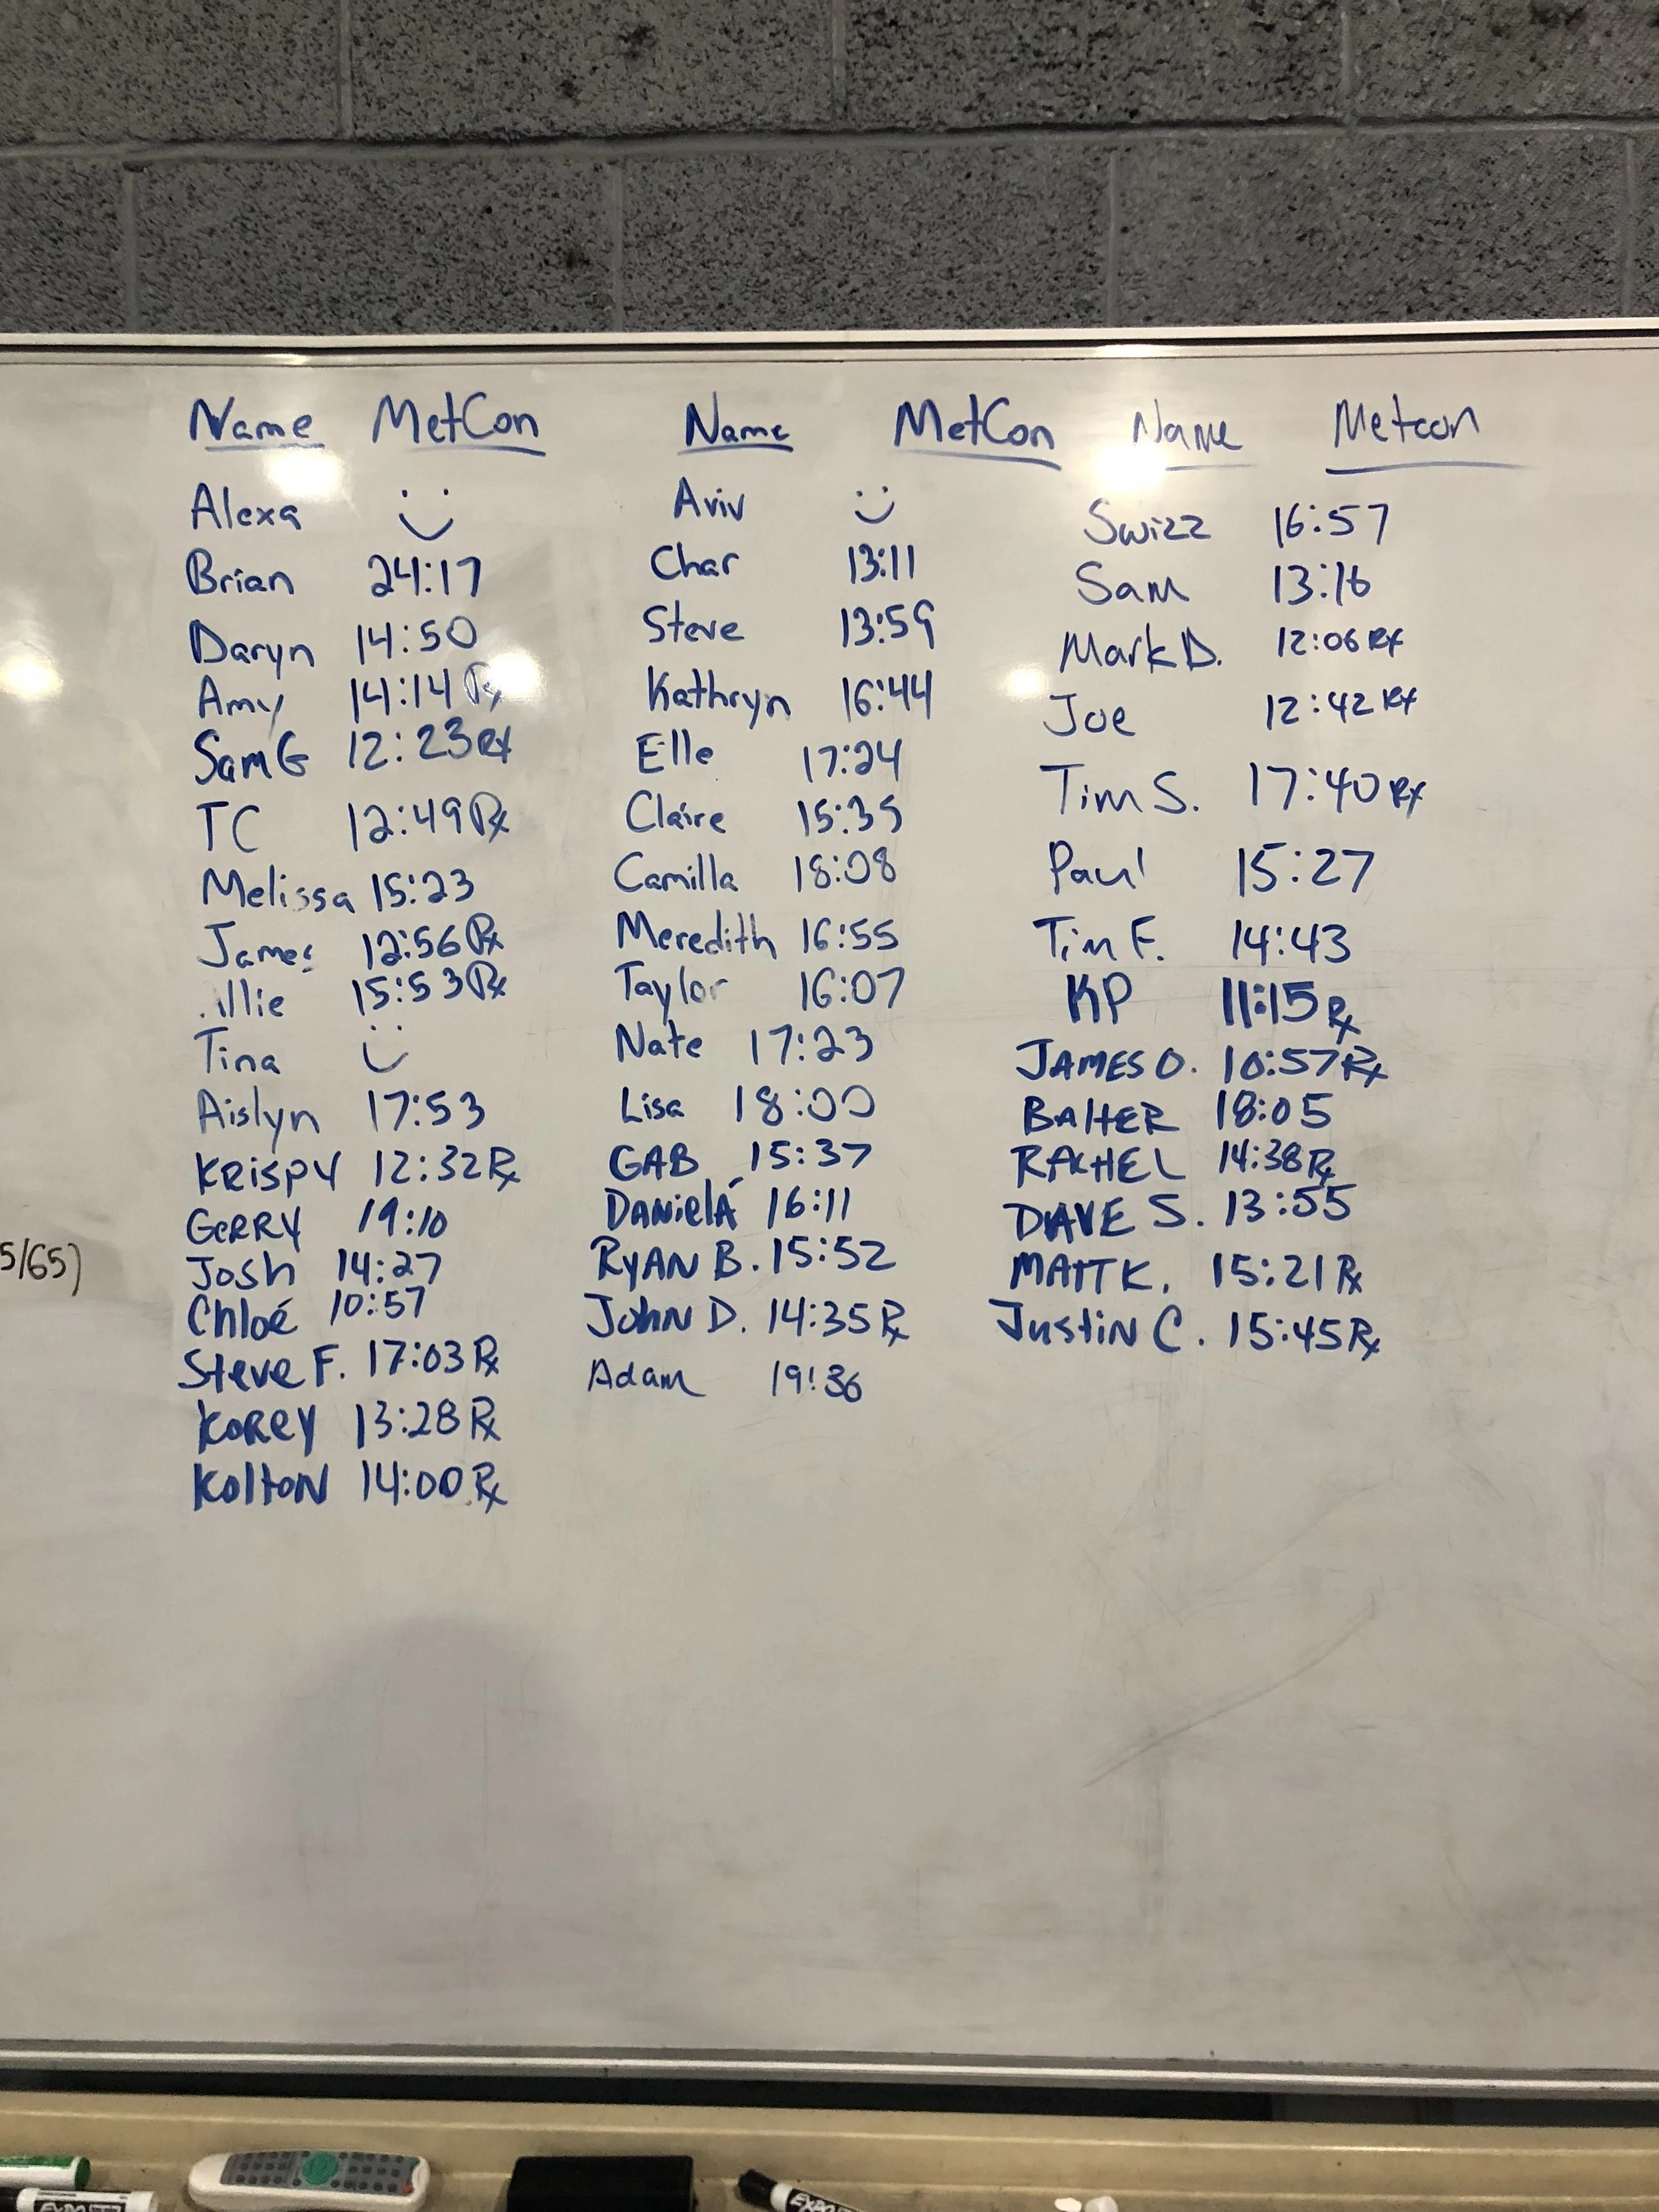 Name MetCon
Alexa
Brian 24:17
Daryn 14:50
Amy 14:14 Rx
Sam G 12:23 Rx
TC 12:49 Rx
Melissa 15:23
James 12:56 Rx
15:53 Rx
Tina
Aislyn 17:53
KRiSPY 12:32 Rx
GeRRY 19:10
Josh 14:27
Chloé 10:57
Steve F. 17:03 Rx
KoReY 13:28 Rx
KoltoN 14:00 Rx
Name MetCon
Aviv
Char 13:11
Steve 13:59
Kathryn 16:44
Elle 17:24
Claire 15:35
Camilla 18:08
Meredith 16:55
Taylor 16:07
Nate 17:23
Lisa 18:00
GAB 15:37
DANielA 16:11
RyAN B. 15:52
JohN D. 14:35 Rx
Adam 19:36
Name Metcon
Swizz 16:57
Sam 13:16
Mark D. 12:06 Rx
Joe 12:42 Rx
Tim S. 17:40 Rx
Paul 15:27
Tim F. 14:43
KP 11:15 Rx
JAMES O. 10:57 Rx
18:05
RACHEL 14:38 Rx
DAVE S. 13:55
MATT K. 15:21 Rx
JustiN C. 15:45 Rx
5/65)
EXPO